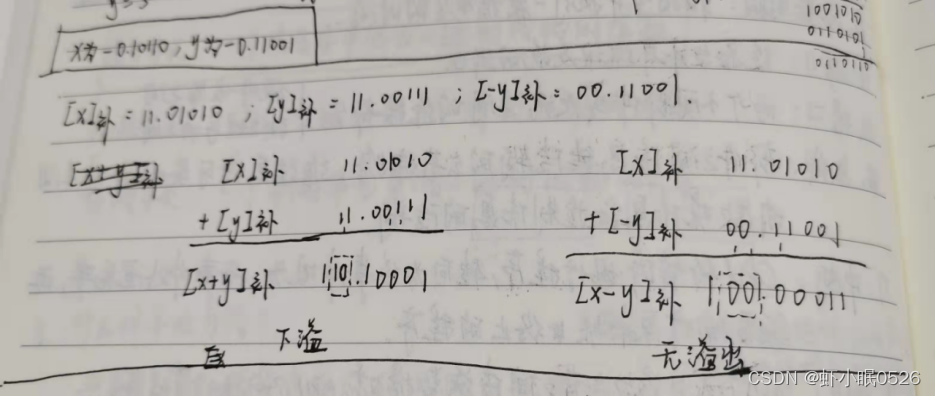 1001010
0110101
011010
x为-0.10110, y为-0.11001
[x]补=11.01010 ; [y]补=11.00111 ; [-y]补=00.11001
[x+y]补 [x]补 11.01010 [x]补 11.01010
+[y]补 11.00111 +[-y]补 00.11001
[x+y]补 110.10001 [x-y]补 100.00011
下溢 无溢出
CSDN @虾小眠0526